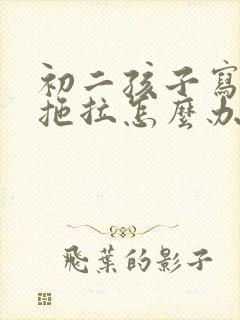 初二孩子寫
拖拉怎麼办
飛葉的影子